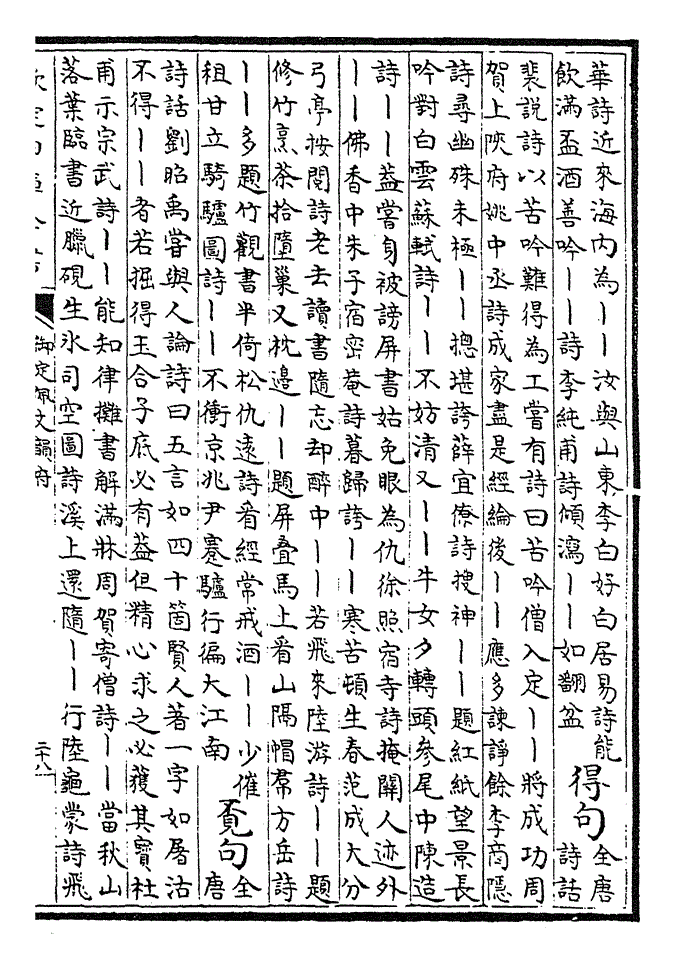 華詩近來海内為丨丨汝與山東李白好白居易詩能
飲滿盃酒善吟丨丨詩李純甫詩傾瀉丨丨如翻盆
得句
全唐
詩話
裴說詩以苦吟難得為工嘗有詩曰苦吟僧入定丨丨將成功周
賀上陜府姚中丞詩成家盡是經綸後丨丨應多諫諍餘李商隱
詩尋幽殊未極丨丨摠堪誇薛宜僚詩搜神丨丨題紅紙望景長
吟對白雲蘇軾詩丨丨丨不妨清又丨丨牛女夕轉頭參尾中陳造
詩丨丨葢嘗身被謗屏書姑免眼為仇徐照宿寺詩掩關人迹外
丨丨佛香中朱子宿密菴詩暮歸誇丨丨寒苦頓生春范成大分
弓亭按閱詩老去讀書隨忘却醉中丨丨若飛來陸游詩丨丨題
修竹烹茶拾墮巢又枕邊丨丨題屏疊馬上看山隔帽裠方岳詩
丨丨多題竹觀書半倚松仇遠詩看經常戒酒丨丨少催
租甘立騎驢圖詩丨丨不衝京兆尹蹇驢行徧大江南
覓句
全
唐
詩話劉昭禹嘗與人論詩曰五言如四十箇賢人著一字如屠沽
不得丨丨者若掘得玉合子底必有葢但精心求之必獲其寳杜
甫示宗武詩丨丨能知律攤書解滿牀周賀寄僧詩丨丨當秋山
落葉臨書近臘硯生氷司空圖詩溪上還隨丨丨行陸龜蒙詩飛
欽定四庫全書
御定佩文韻府
二十八